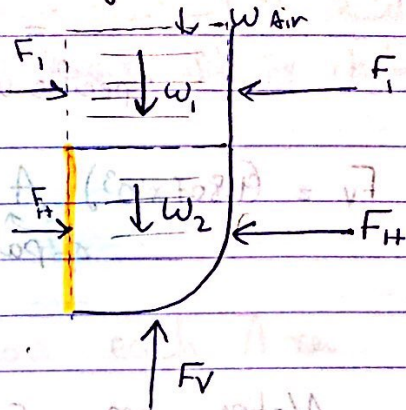 W Air
F₁ W₁ F₁
F_H W₂ F_H
F_V